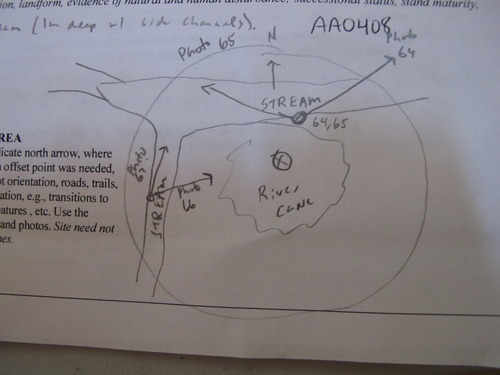 ion, landform, evidence of natural and human disturbance, successional status, stand maturity,
eam (1m deep w/ side channels).
AA0408
Photo 65
N
Photo
64
STREAM
64,65
REA
dicate north arrow, where
n offset point was needed,
ot orientation, roads, trails,
ation, e.g., transitions to
eatures, etc. Use the
and photos. Site need not
nes.
Photo
STREAM
Photo
66
River
CANE